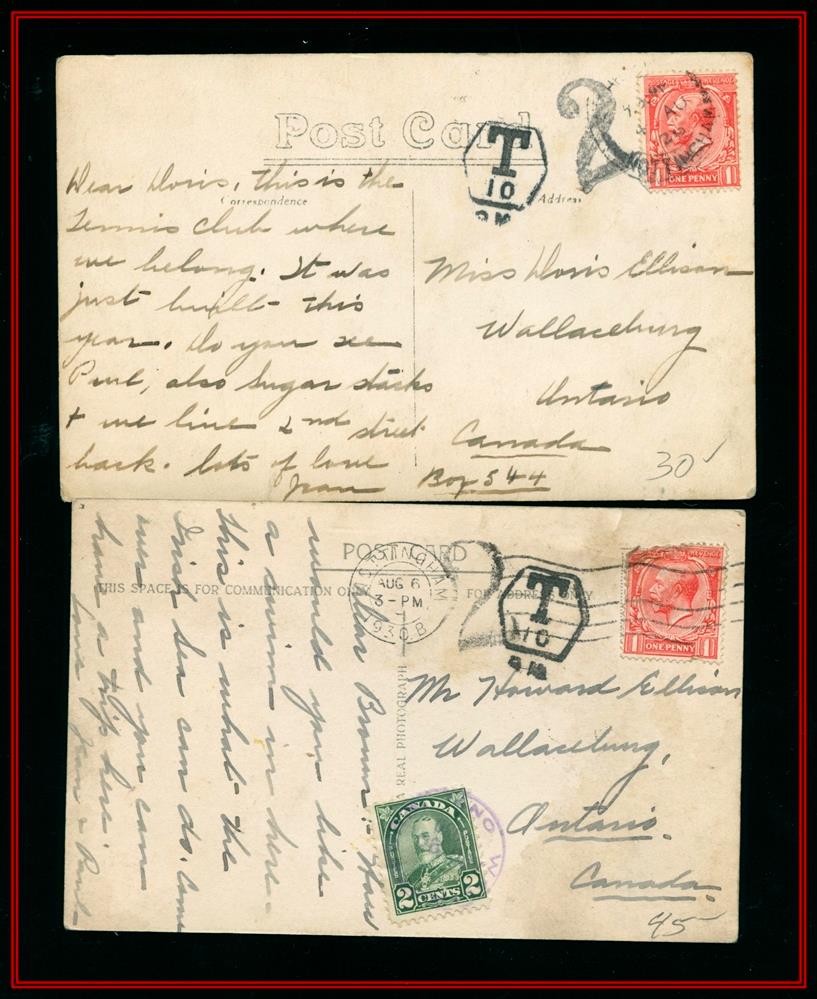 Post Card
Correspondence
Address
T
10
2
POSTAGE REVENUE
ONE PENNY
1 1
Dear Doris, This is the
Tennis club where
we belong. It was
just built this
year. Do you see
Paul, also sugar stacks
+ we live 2nd street
back. lots of love
Jean
Miss Doris Ellison
Wallaceburg
Ontario
Canada
Box 544
30
POST CARD
THIS SPACE IS FOR COMMUNICATION ONLY
FOR ADDRESS ONLY
A REAL PHOTOGRAPH
NOTTINGHAM
AUG 6
3-PM
1930 B
2
T
10
POSTAGE REVENUE
ONE PENNY
1 1
Dear Brown:- How
would you like
a swim in here
this is what the
Irish Sea can do. Come
over and you can
have a trip here.
Love Jean & Paul
Mr Howard Ellison
Wallaceburg,
Ontario.
Canada.
CANADA
2 CENTS 2
45